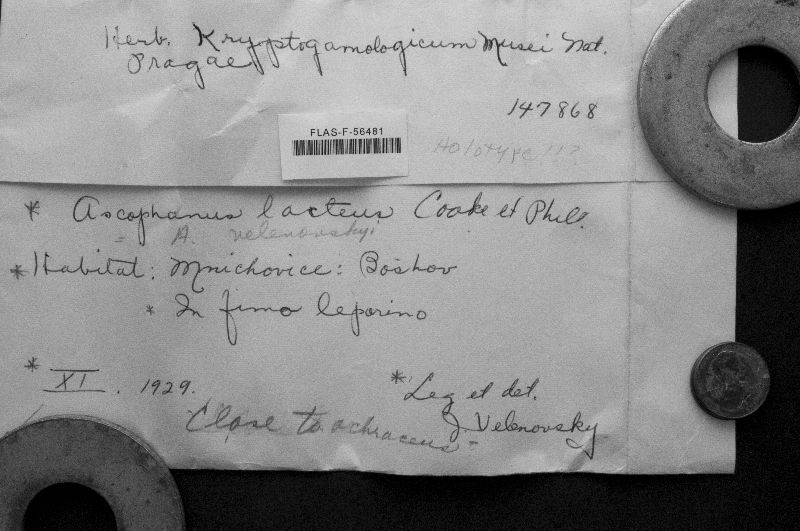 Herb. Kryptogamologicum Musei Nat.
Pragae
147868
FLAS-F-56481
Holotype!!?
* Ascophanus lacteus Cooke et Phill.
= A. velenovskyi
* Habitat: Mnichovice: Božkov
* In fimo leporino
* XI. 1929.
* Leg et det.
J. Velenovsky
Close to ochraceus -